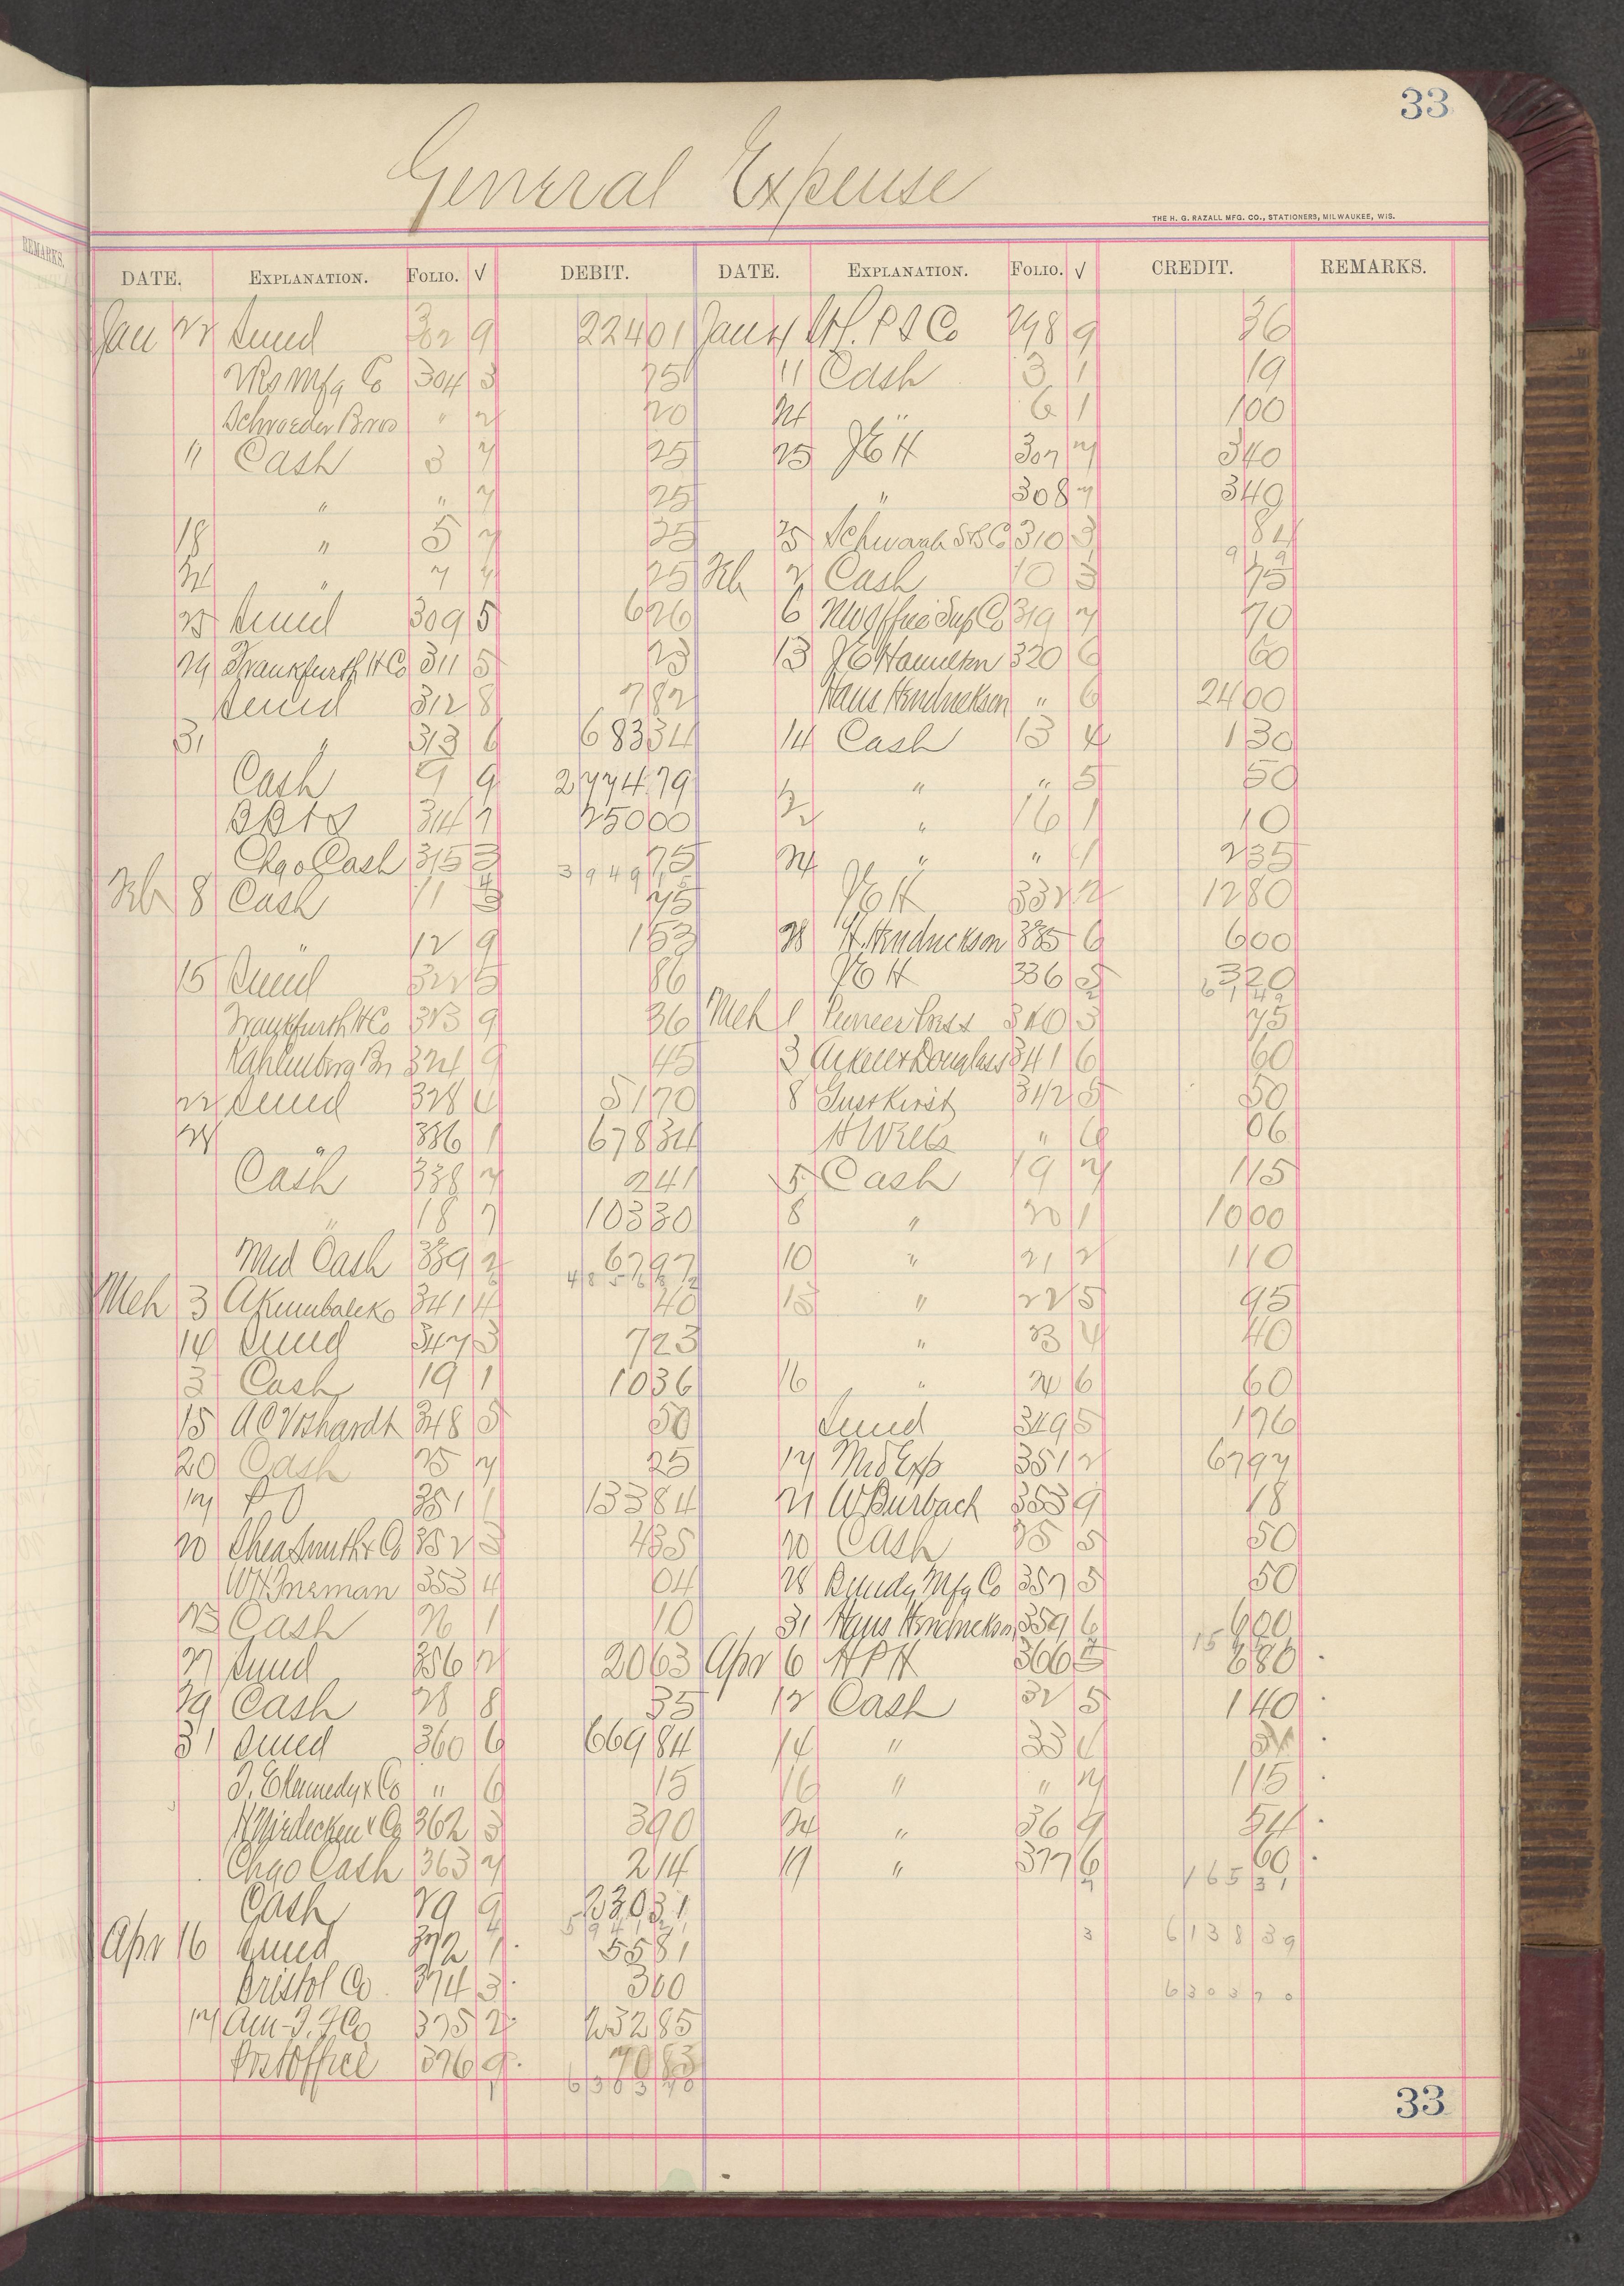 33
General Expense
THE H. G. RAZALL MFG. CO., STATIONERS, MILWAUKEE, WIS.
REMARKS.
DATE. EXPLANATION. FOLIO. √ DEBIT. DATE. EXPLANATION. FOLIO. √ CREDIT. REMARKS.
Jan 22 Sund 302 9 22401 Jan 4 P S Co 298 9 36
Mfg Co 304 3 75 11 Cash 3 1 19
Schroeder Bros " 2 20 24 " 6 1 100
11 Cash 3 7 25 25 J E H 307 7 340
" " 7 25 " 308 7 340
18 " 5 7 25 25 S B Co 310 3 84
24 " 7 7 25 Feb 2 Cash 10 3 75
25 Sund 309 5 626 6 NW Office Sup Co 319 7 70
29 Frankfurth H Co 311 5 23 13 J E Hamilton 320 6 60
Sund 312 8 782 Hans Hendrickson " 6 2400
31 " 313 6 68334 14 Cash 13 4 130
Cash 9 9 277479 " " 5 50
314 7 25000 22 " 16 1 10
Chgo Cash 315 3 75 24 " " 1 235
394915
Feb 8 Cash 11 3 75 J E H 332 2 1280
" 12 9 153 28 H. Hendrickson 335 6 600
15 Sund 322 5 86 J E H 336 5 320
Frankfurth H Co 323 9 36 Mch 1 Pioneer Press 340 3 75
Kahlenberg Br 324 9 45 3 & Douglass 341 6 60
22 Sund 328 4 5170 8 Gust Kirst 342 5 50
24 " 336 1 67834 H Wells " 6 06
Cash 338 7 241 5 Cash 19 7 115
" 18 7 10330 8 " 20 1 1000
Med Cash 339 2 6797 10 " 21 2 110
Mch 3 A Kumbalek 341 4 40 15 " 22 5 95
14 Sund 347 3 723 " 23 4 40
3 Cash 19 1 1036 16 " 24 6 60
15 A C Voshardt 348 5 50 Sund 349 5 176
20 Cash 25 7 25 17 Med Exp 351 2 6797
17 P O 351 1 13384 21 W Burbach 353 9 18
20 Shea Smith & Co 352 3 435 20 Cash 25 5 50
353 4 04 28 Bundy Mfg Co 357 5 50
23 Cash 26 1 10 31 Hans Hendrickson 359 6 600
27 Sund 356 2 2063 Apr 6 H P H 366 5 680
29 Cash 28 8 35 12 Cash 32 5 140
31 Sund 360 6 66984 14 " 33 4
J. E Kennedy & Co " 6 15 16 " " 7 115
& Co 362 3 390 24 " 36 9 54
Chgo Cash 363 7 214 19 " 377 6 60
16531
Cash 29 9 23031
Apr 16 Sund 372 1 5581 3 613839
Bristol Co 374 3 300 630370
17 Am. T. Co 375 2 23285
Postoffice 376 9 7083
630370
33